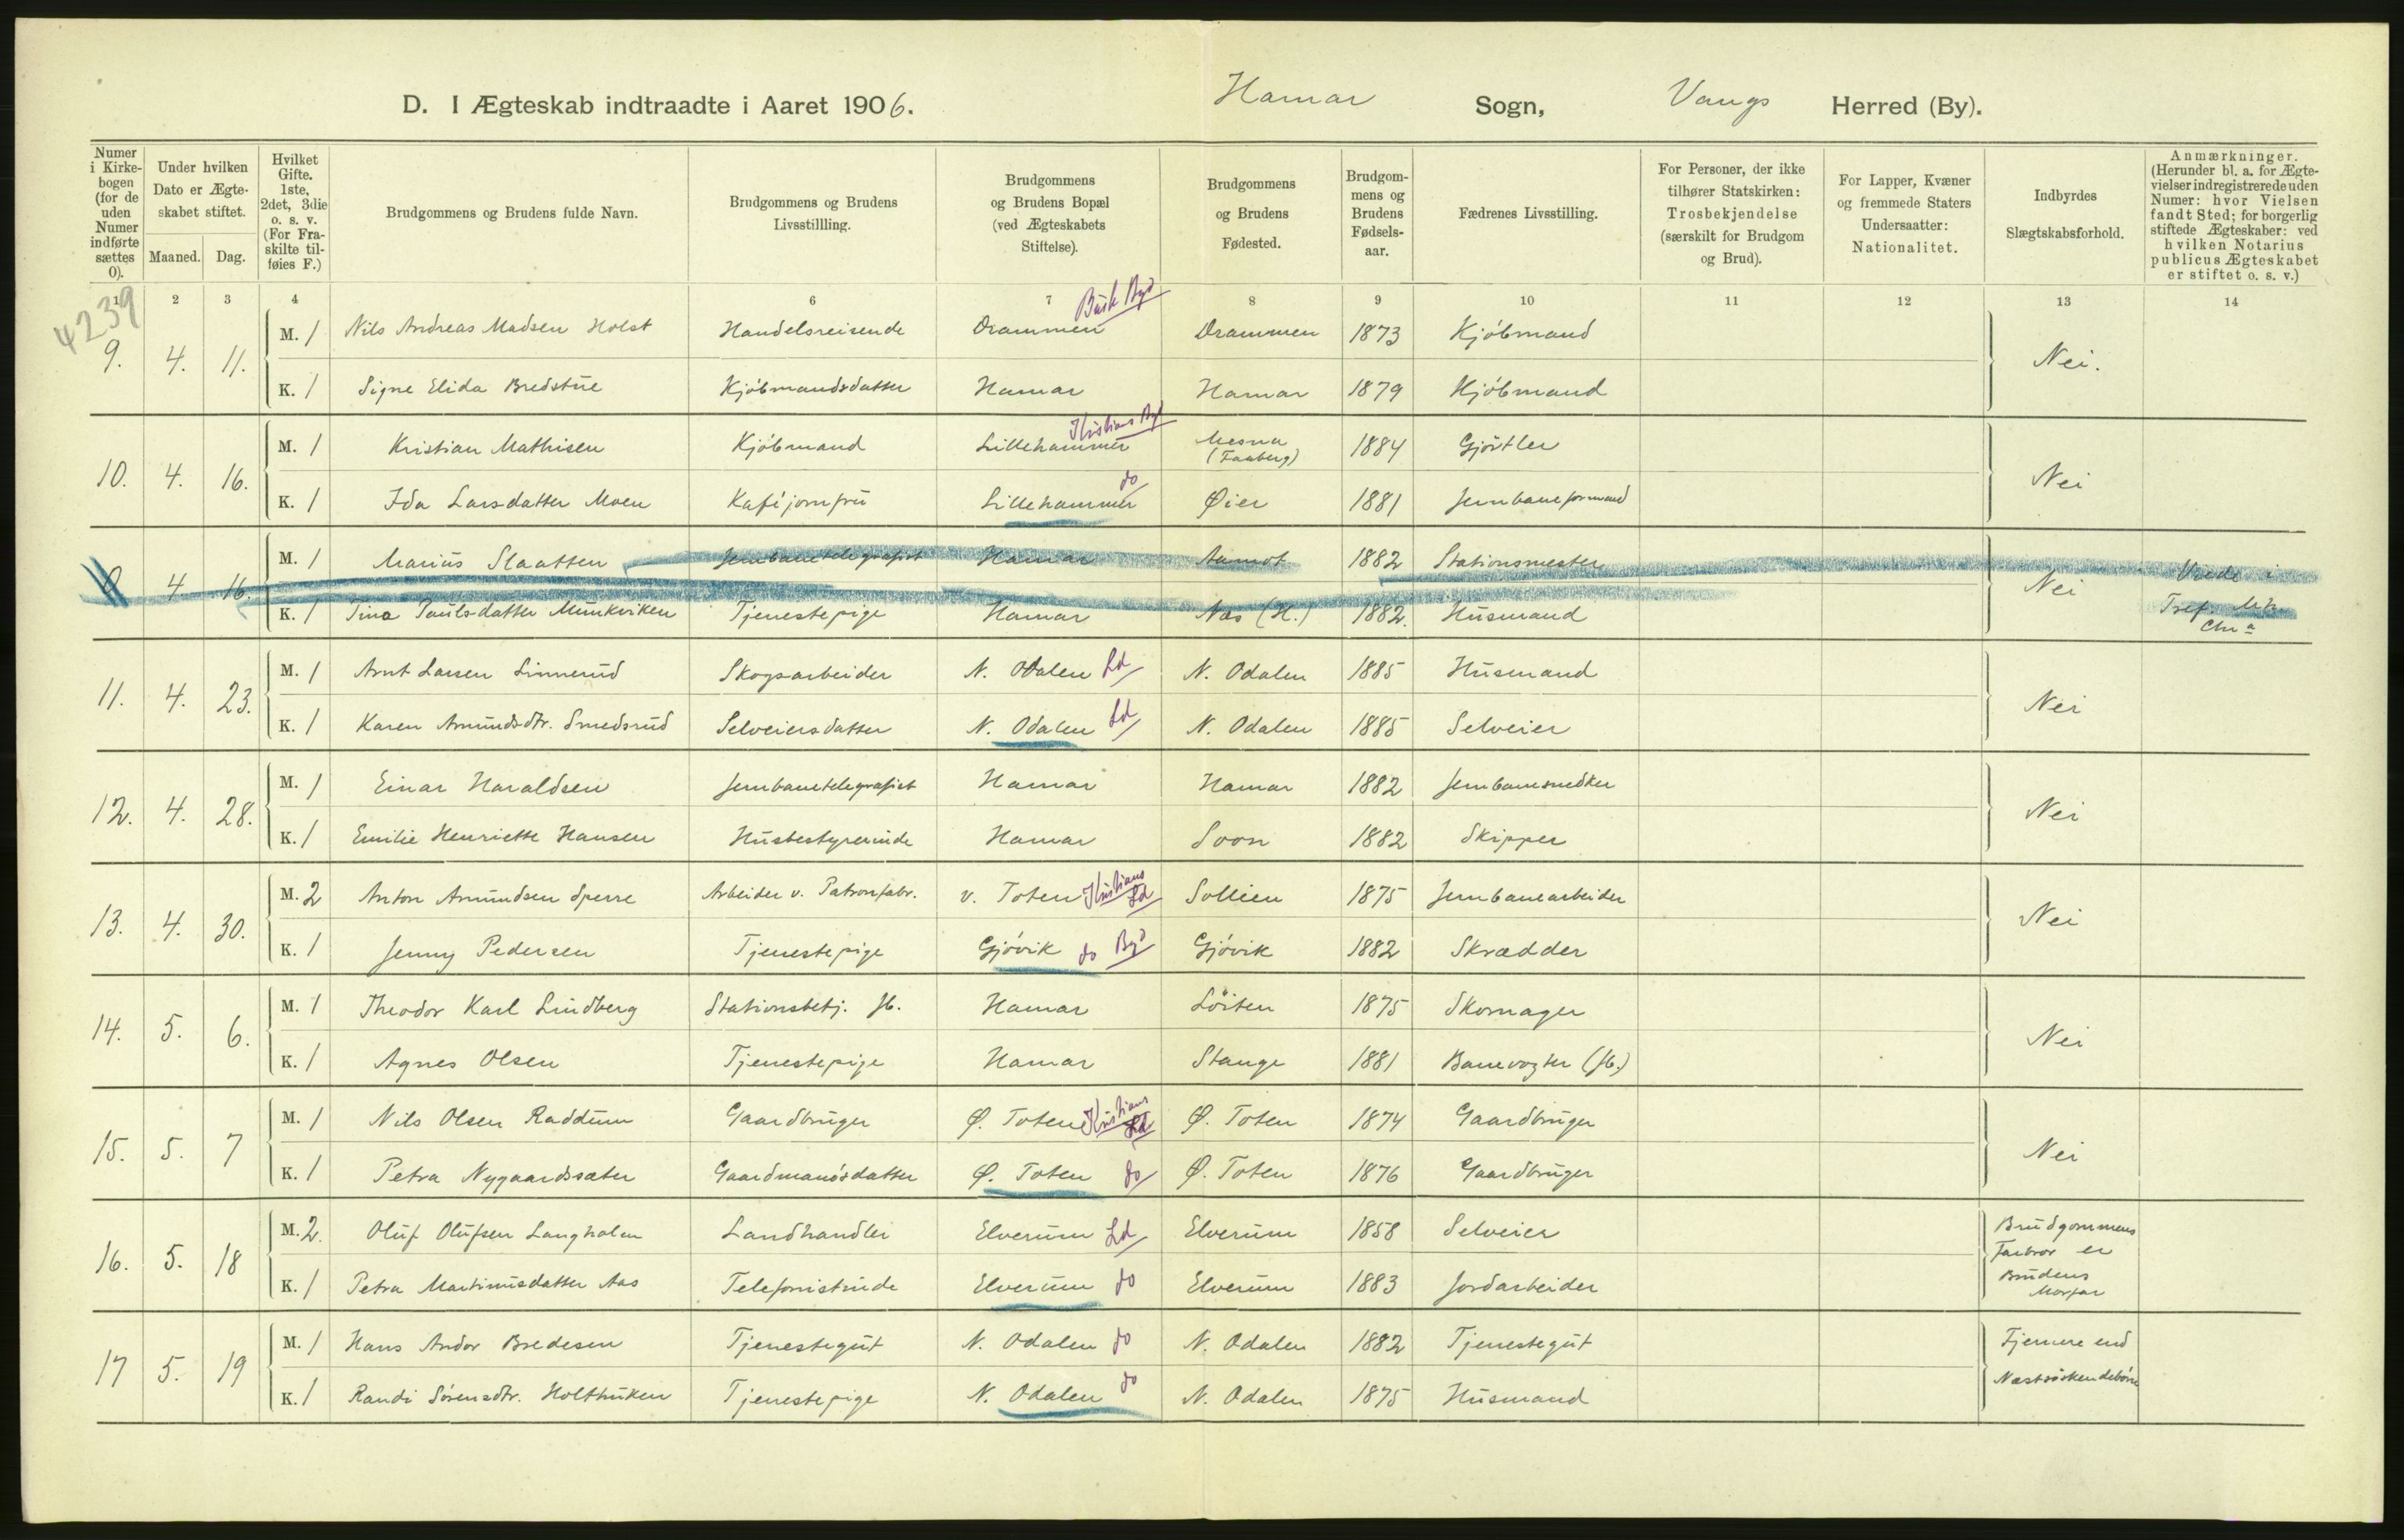 D. I Ægteskab indtraadte i Aaret 1906. Hamar Sogn, Vangs Herred (By).
Numer i Kirkebogen (for de uden Numer indførte sættes 0).
Under hvilken Dato er Ægteskabet stiftet.
Maaned. Dag.
Hvilket Gifte. 1ste, 2det, 3die o. s. v. (For Fraskilte tilføies F.)
Brudgommens og Brudens fulde Navn.
Brudgommens og Brudens Livsstillling.
Brudgommens og Brudens Bopæl (ved Ægteskabets Stiftelse).
Brudgommens og Brudens Fødested.
Brudgommens og Brudens Fødselsaar.
Fædrenes Livsstilling.
For Personer, der ikke tilhører Statskirken: Trosbekjendelse (særskilt for Brudgom og Brud).
For Lapper, Kvæner og fremmede Staters Undersaatter: Nationalitet.
Indbyrdes Slægtskabsforhold.
Anmærkninger. (Herunder bl. a. for Ægtevielser indregistrerede uden Numer: hvor Vielsen fandt Sted; for borgerlig stiftede Ægteskaber: ved hvilken Notarius publicus Ægteskabet er stiftet o. s. v.)
1 2 3 4 6 7 8 9 10 11 12 13 14
4239
9. 4. 11. M. 1 Nils Andreas Madsen Holst Handelsreisende Drammen Busk Byd Drammen 1873 Kjöbmand Nei.
K. 1 Signe Elida Bredstue Kjöbmandsdatter Hamar Hamar 1879 Kjöbmand
10. 4. 16. M. 1 Kristian Mathisen Kjöbmand Lillehammer Kristians Byd Mesna (Faaberg) 1884 Gjörtler Nei
K. 1 Ida Larsdatter Moen Kaféjomfru Lillehammer do Øier 1881 Jernbaneformand
0 4 16. M. 1 Marius Slaatten Jernbanetelegrafist Hamar Aamot 1882 Stationsmester Nei Viede i
K. 1 Tina Paulsdatter Munkviken Tjenestepige Hamar Næs (H.) 1882. Husmand Tref. Mh. Chr a
11. 4. 23. M. 1 Arnt Larsen Linnerud Skogsarbeider N. Odalen Ld N. Odalen 1885 Husmand Nei
K. 1 Karen Amundsdtr. Smedsrud Selveiersdatter N. Odalen Ld N. Odalen 1885 Selveier
12. 4. 28. M. 1 Einar Haraldsen Jernbanetelegrafist Hamar Hamar 1882 Jernbanesnedker Nei
K. 1 Emilie Henriette Hansen Husbestyrerinde Hamar Soon 1882 Skipper
13. 4. 30. M. 2 Anton Amundsen Sperre Arbeider v. Patronfabr. V. Toten Kristians Ld Sollien 1875 Jernbanearbeider Nei
K. 1 Jenny Pedersen Tjenestepige Gjövik do Byd Gjövik 1882 Skrædder
14. 5. 6. M. 1 Theodor Karl Lindberg Stationsbetj. Jb. Hamar Löiten 1875 Skomager Nei
K. 1 Agnes Olsen Tjenestepige Hamar Stange 1881 Banevogter (Jb.)
15. 5. 7 M. 1 Nils Olsen Raddum Gaardbruger Ø. Toten Kristians Ld Ø. Toten 1874 Gaardbruger Nei
K. 1 Petra Nygaardssæter Gaardmandsdatter Ø. Toten do Ø. Toten 1876 Gaardbruger
16. 5. 18 M. 2. Oluf Olufsen Langholm Landhandler Elverum Ld Elverum 1858 Selveier Brudgommens Farbror er
K. 1 Petra Martinusdatter Aas Telefonistinde Elverum do Elverum 1883 Jordarbeider Brudens Morfar
17 5. 19 M. 1 Hans Andor Bredesen Tjenestegut N. Odalen do N. Odalen 1882 Tjenestegut Fjernere end
K. 1 Randi Sörensdtr. Holthuken Tjenestepige N. Odalen do N. Odalen 1875 Husmand Næstsöskendebörn